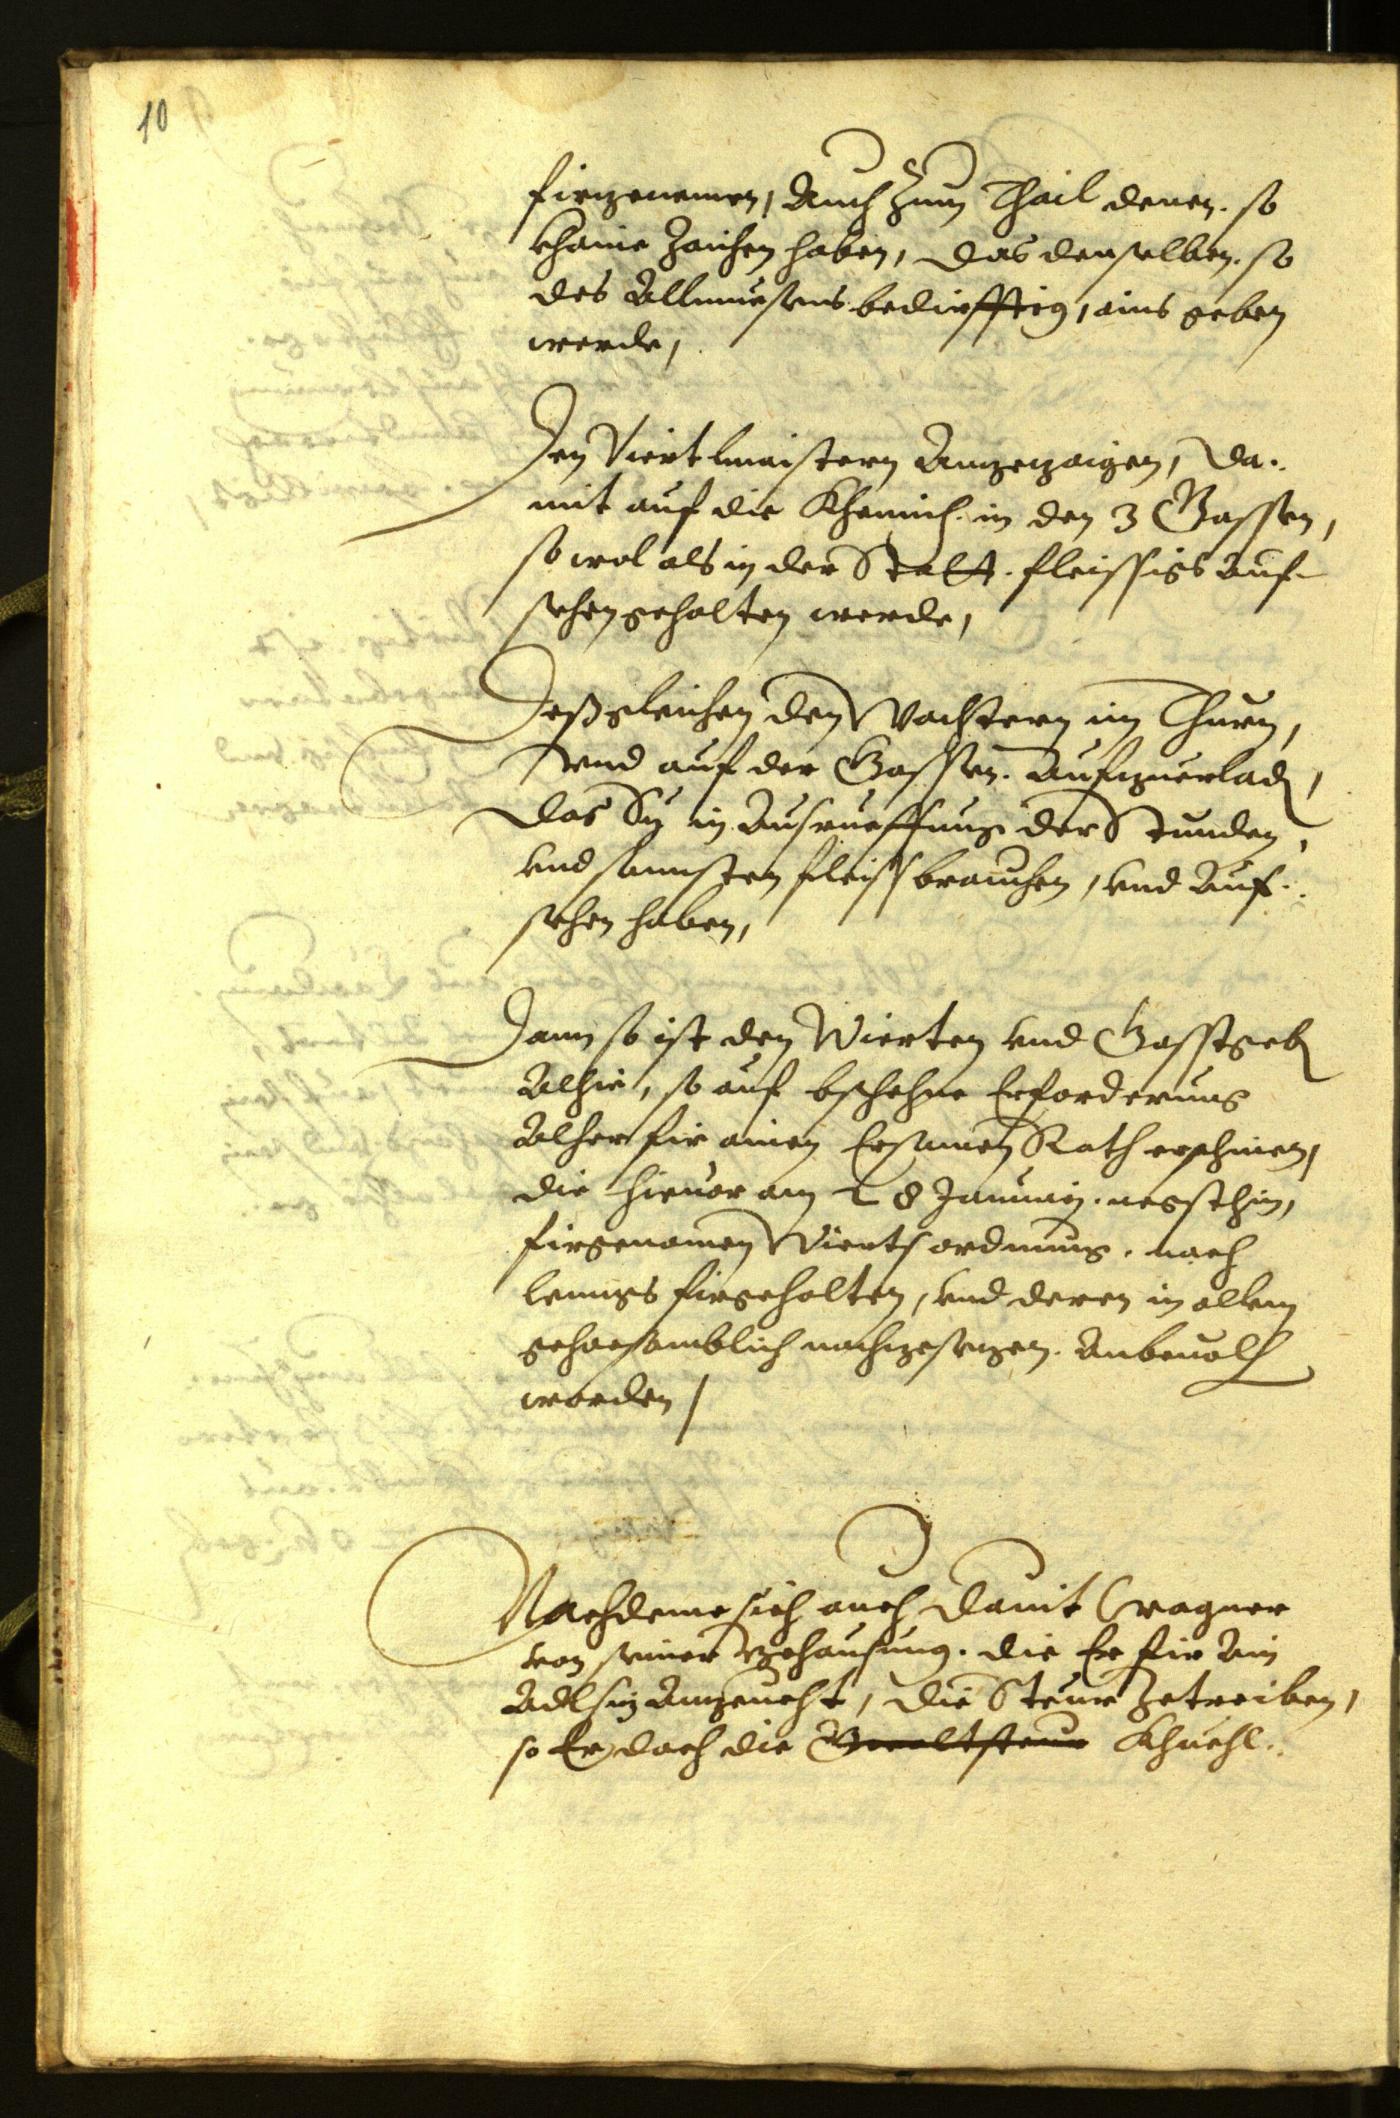 10
firzenemen, Auch zum Thail denen. so
khaine Zaichen haben, das denselben. so
des Allmuesens bedürfftig, ains geben
werde,
Den Viertlmaistern Anzezaigen, Da..
mit auf die Khemich. in den 3 Gassen,
so wol als in der Statt. fleissigs auf-
sehen gehalten werde,
Deßgleichen den Wachtern im Thurn,
vnd auf der Gassen. Aufzuerladen,
das Sy in Ausrueffung der Stunden,
vnd sonnsten fleiß brauchen, vnd Auf..
sehen haben,
Dann so ist den Wierten vnd Gasstgeben
Alhie, so auf beschehne Erforderung
Alher fir ainen Ersamen Rath erschinen,
die hieuor am 18 Januarij. negsthin,
firgenomen Wierts ordnung. nach
lenngs firgehalten, vnd deren in allem
gehorsamblich nachzesetzen. Anbeuolhen
worden /
Nachdeme sich auch Dauit Wagner
von seiner Behausung. die Er fir Ain
Adlsiz Anzeucht, die Steur Zetreiben,
so Er doch die Gwaltsteur Khuehl..